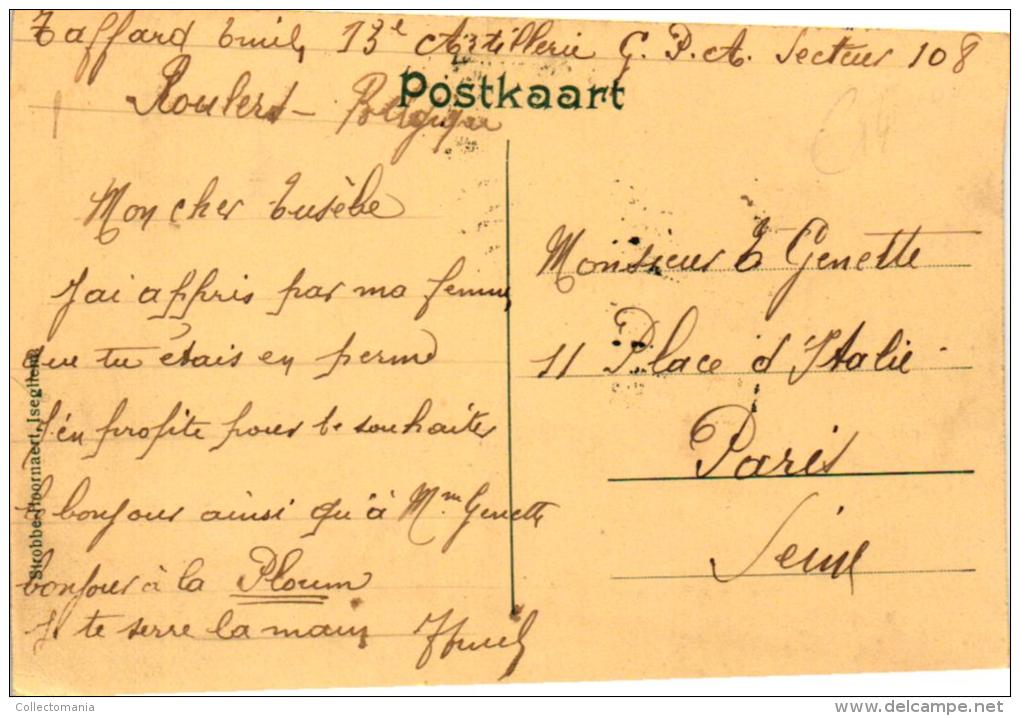 Taffard Emile 13e Artillerie C. P. A. Secteur 108
Postkaart
Roulers - Belgique
Mon cher Eusèbe
J'ai appris par ma femme
que tu étais en perme
j'en profite pour te souhaiter
le bonjour ainsi qu'à Mme Genette
bonjour à la Ploum
Je te serre la main
Monsieur E Genette
11 Place d'Italie
Paris
Seine
Strobbe-Hoornaert, Iseghem
Collectomania
www.delcampe.net